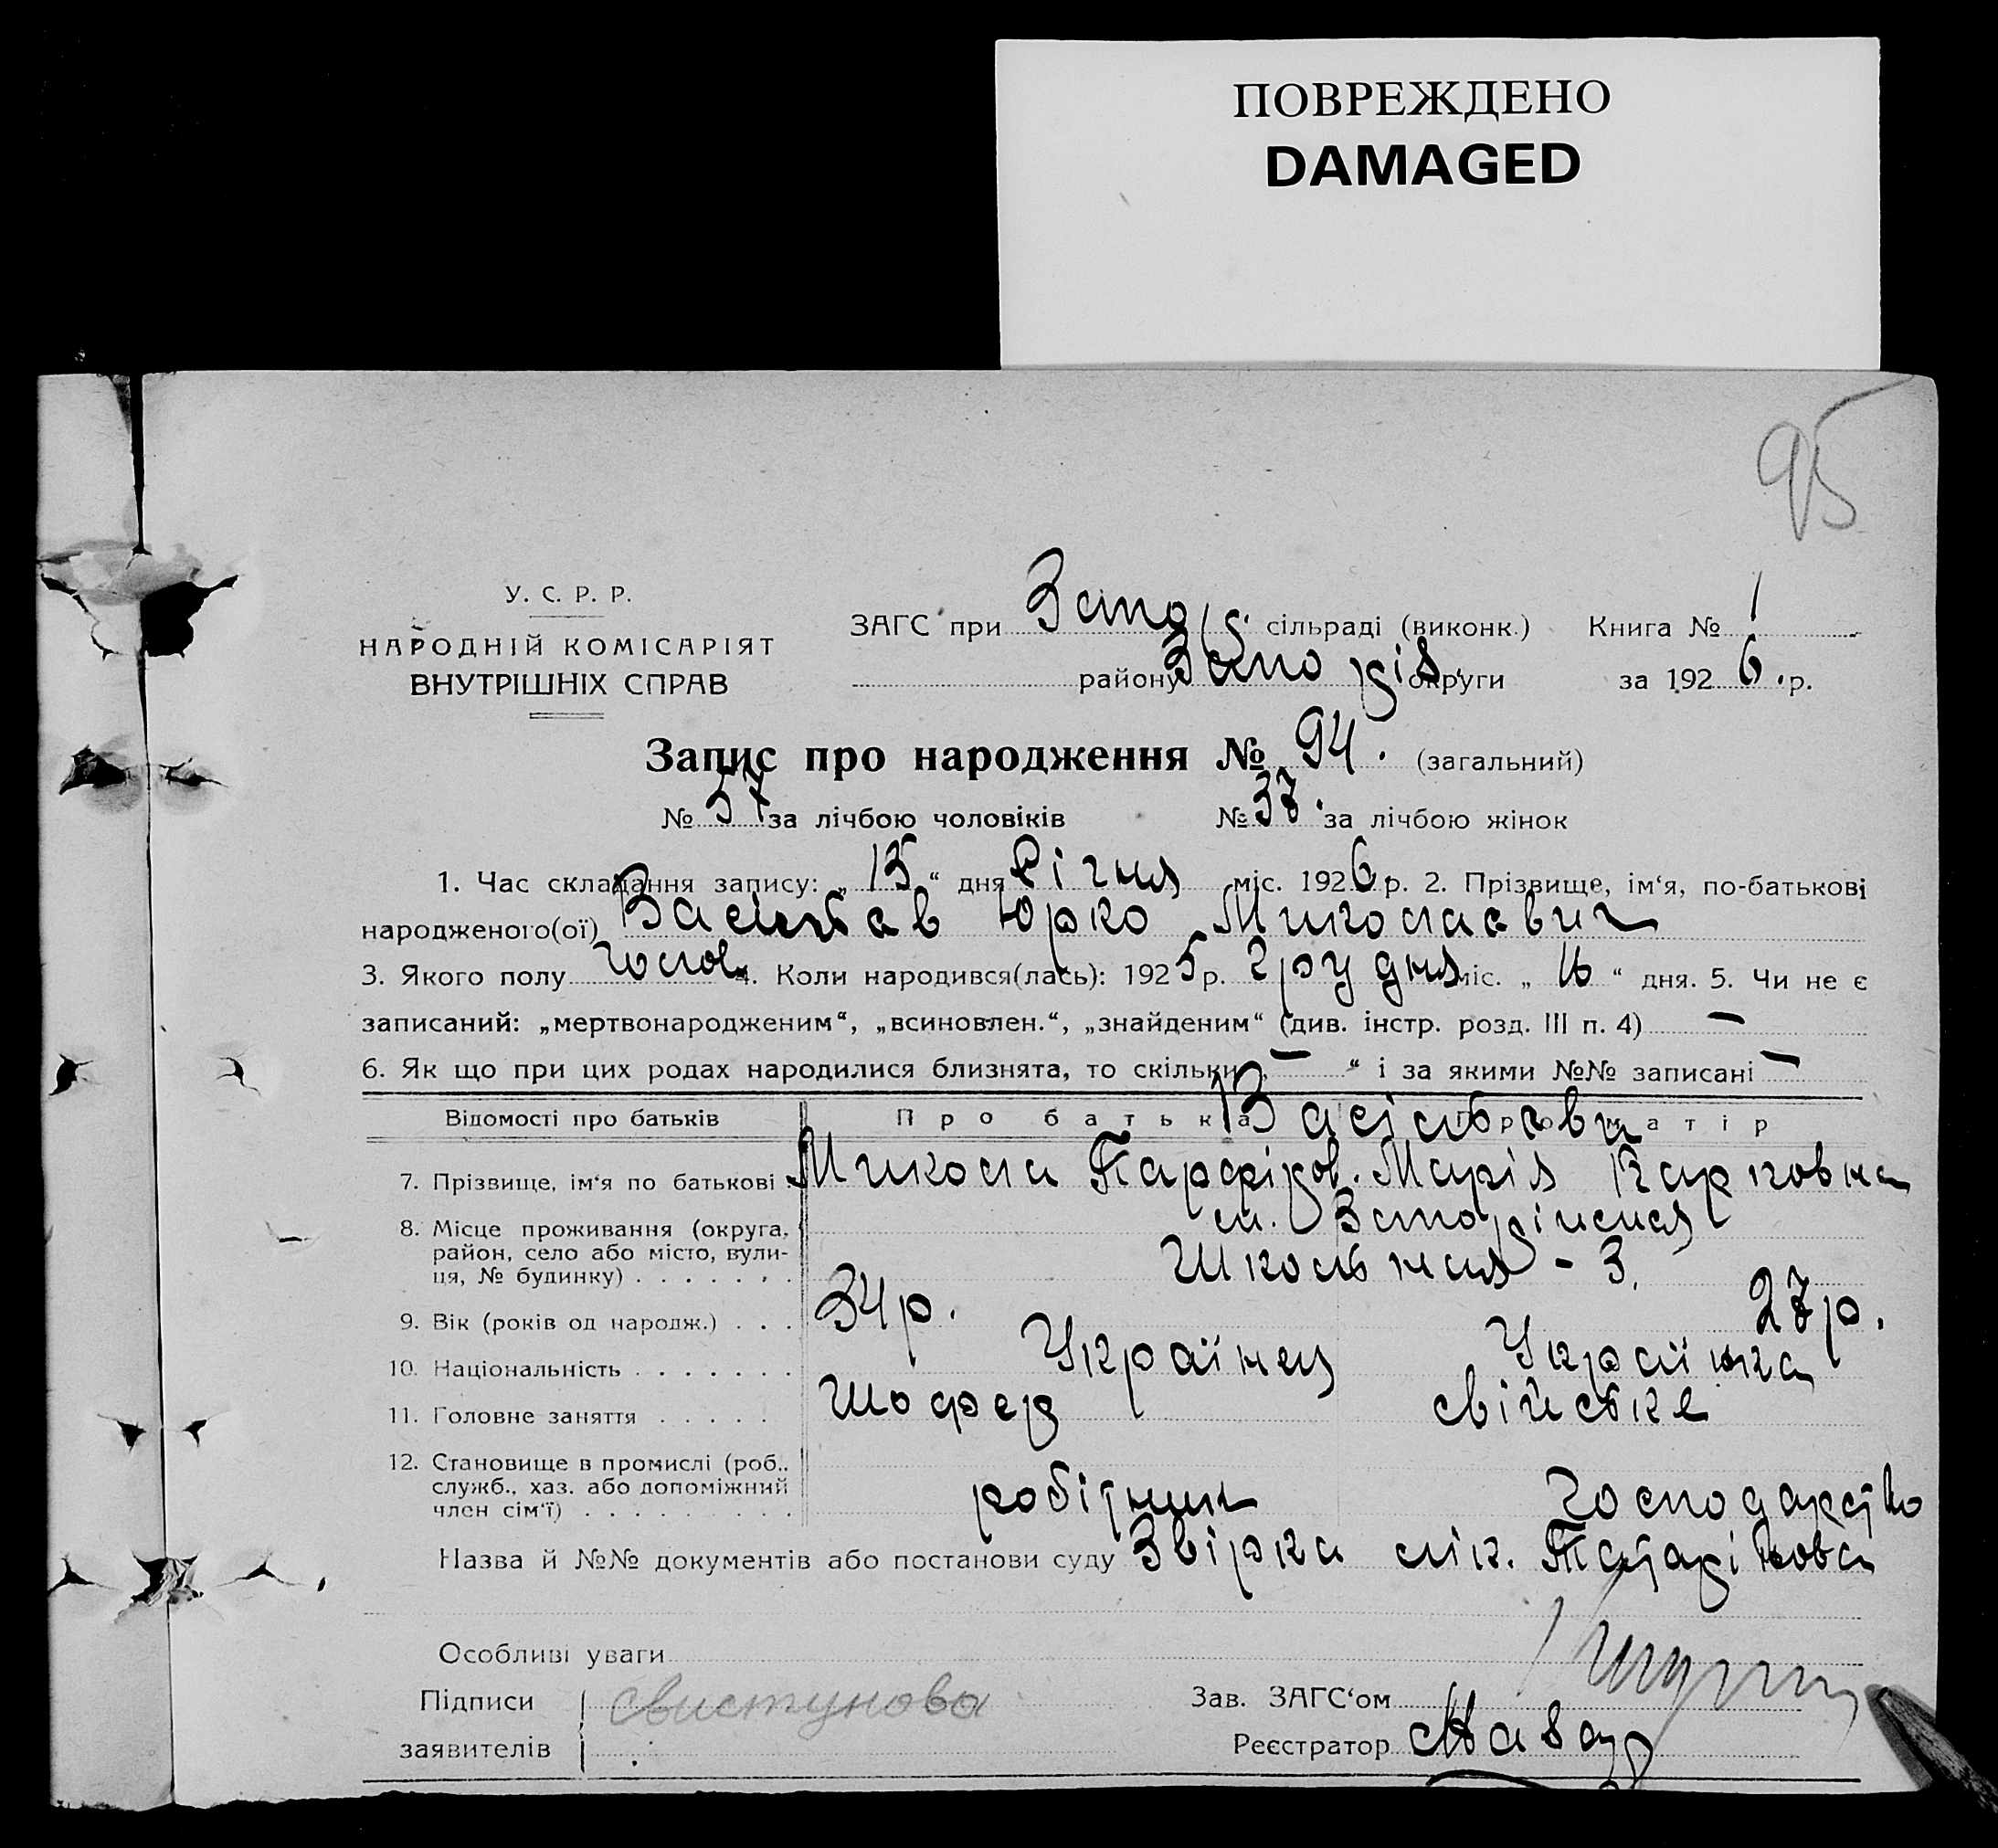 ПОВРЕЖДЕНО
DAMAGED
95
У. С. Р. Р.
НАРОДНІЙ КОМІСАРІЯТ
ВНУТРІШНІХ СПРАВ
ЗАГС при Запоріз. сільраді (виконк.) Книга № 1
району Запоріз. округи за 1926.р.
Запис про народження № 94. (загальний)
№ 57 за лічбою чоловіків № 37. за лічбою жінок
1. Час складання запису: „15“ дня Січня міс. 1926 р. 2. Прізвище, ім‘я, по-батькові
народженого(ої) Юрко Миколаєвич
3. Якого полу чолов. 4. Коли народився(лась): 1925 р. грудня міс. „16“ дня. 5. Чи не є
записаний: „мертвонародженим“, „всиновлен.“, „знайденим“ (див. інстр. розд. III п. 4) —
6. Як що при цих родах народилися близнята, то скільки „—“ і за якими №№ записані —
Відомості про батьків Про батька Про матір
7. Прізвище, ім‘я по батькові Микола Парфіров. Марія Карповна
8. Місце проживання (округа, район, село або місто, вули-ця, № будинку) Школьная - 3.
9. Вік (років од народж.) 34р. 27р.
10. Національність Українец Українка
11. Головне заняття Шофер свійське
12. Становище в промислі (роб., служб., хаз. або допоміжний член сім‘ї) робітник господарство
Назва й №№ документів або постанови суду Звірка лік.
Особливі уваги
Підписи заявителів Свистунова
Зав. ЗАГС‘ом
Реєстратор